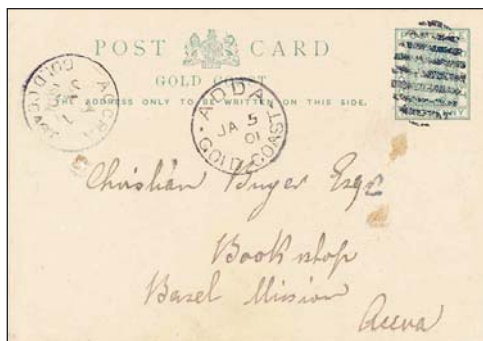 POST CARD
GOLD COAST
THE ADDRESS ONLY TO BE WRITTEN ON THIS SIDE.
ACCRA
GOLD COAST
ADDA
JA 5
01
GOLD COAST
Christian Esqr
Book shop
Basel Mission
Accra